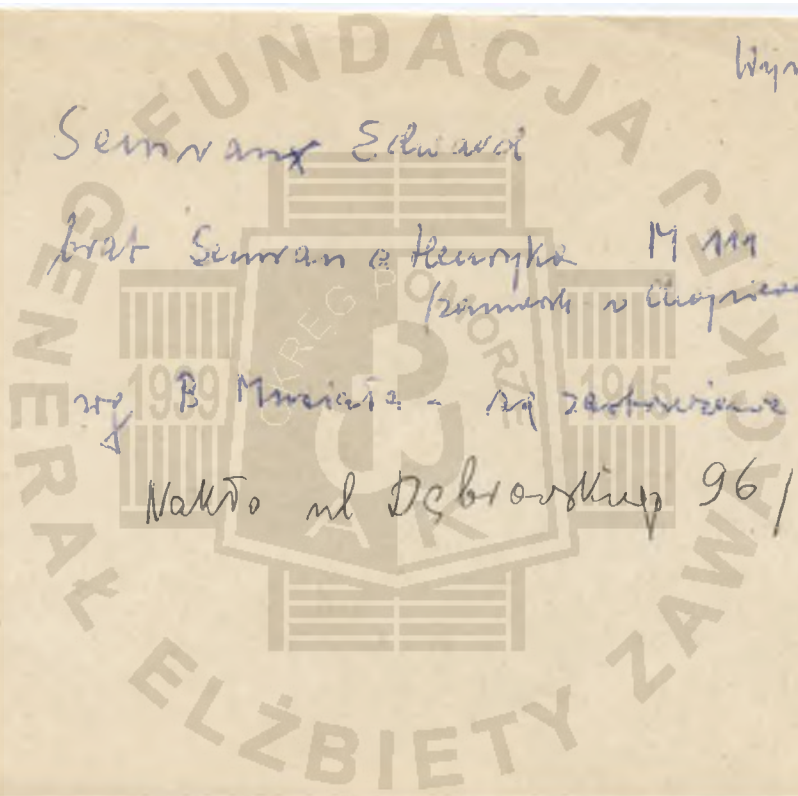 Wyr
Semrau Edward
brat Semrau a Henryka M 111
w
wg B Musiała - są zastrzeżenia
Nakło ul Dąbrowskiego 96/
FUNDACJA GENERAŁ ELŻBIETY ZAWACKIEJ
OKRĘG POMORZE
1939 1945
AK